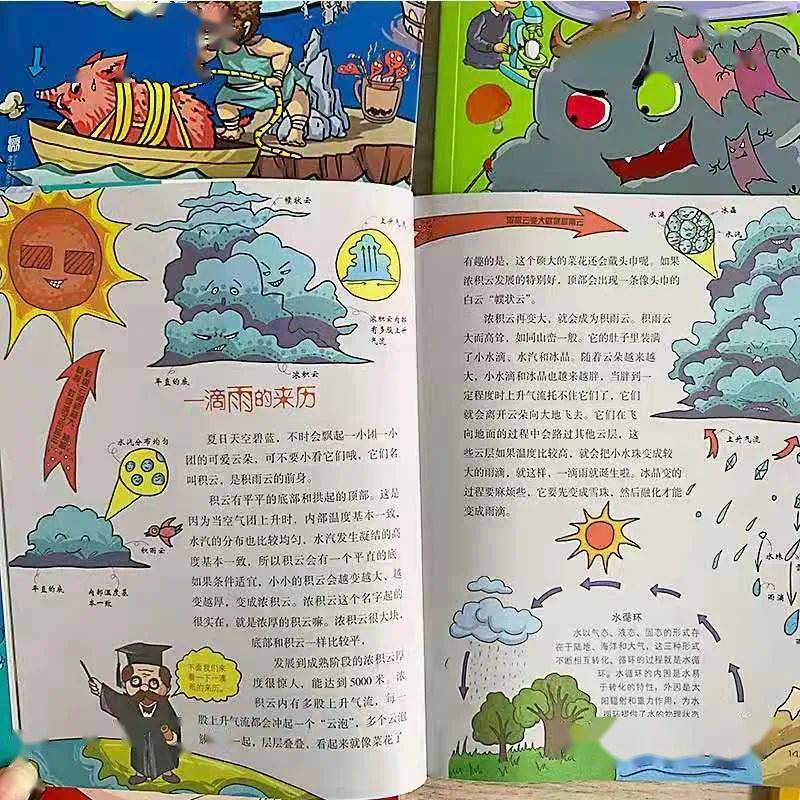 幞状云
上升气流
浓积云内部
有多股上升
气流
平直的底
浓积云
一滴雨的来历
水汽分布均匀
积雨云
平直的底
内部温度基
本一致
夏日天空碧蓝，不时会飘起一小团一小
团的可爱云朵，可不要小看它们哦，它们名
叫积云，是积雨云的前身。
积云有平平的底部和拱起的顶部。这是
因为当空气团上升时，内部温度基本一致，
水汽的分布也比较均匀，水汽发生凝结的高
度基本一致，所以积云会有一个平直的底。
如果条件适宜，小小的积云会越变越大、越
变越厚，变成浓积云。浓积云这个名字起的
很实在，就是浓厚的积云嘛。浓积云很大块，
底部和积云一样比较平，
发展到成熟阶段的浓积云厚
度很惊人，能达到5000米。浓
积云内有多股上升气流，每一
股上升气流都会冲起一个“云泡”，多个云泡
一起，层层叠叠，看起来就像菜花了
下面我们来
看一下一滴
雨的来历。
有趣的是，这个硕大的菜花还会戴头巾呢。如果
浓积云发展的特别好，顶部会出现一条像头巾的
白云“幞状云”。
浓积云再变大，就会成为积雨云。积雨云
大而高耸，如同山峦一般。它的肚子里装满
了小水滴、水汽和冰晶。随着云朵越来越
大，小水滴和冰晶也越来越胖，当胖到一
定程度时上升气流托不住它们了，它们
就会离开云朵向大地飞去。它们在飞
向地面的过程中会路过其他云层，这
些云层如果温度比较高，就会把小水珠变成较
大的雨滴，就这样，一滴雨就诞生啦。冰晶变的
过程要麻烦些，它要先变成雪珠，然后融化才能
变成雨滴。
水滴
冰晶
水汽
上升气流
水珠
雨滴
水循环
水以气态、液态、固态的形式存
在于陆地、海洋和大气，这三种形式
不断相互转化，循环的过程就是水循
环。水循环的内因是水易
于转化的特性，外因是太
阳辐射和重力作用，为水
循环提供了水的物理状态